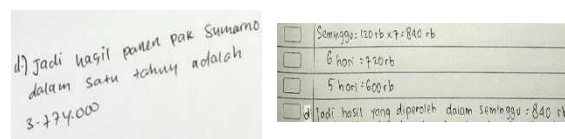 d.) Jadi hasil panen pak Sumarno
dalam satu tahun adalah
3.774.000
Seminggu: 120rb x 7 = 840 rb
6 hari : 720rb
5 hari : 600rb
d Jadi hasil yang diperoleh dalam seminggu : 840 rb